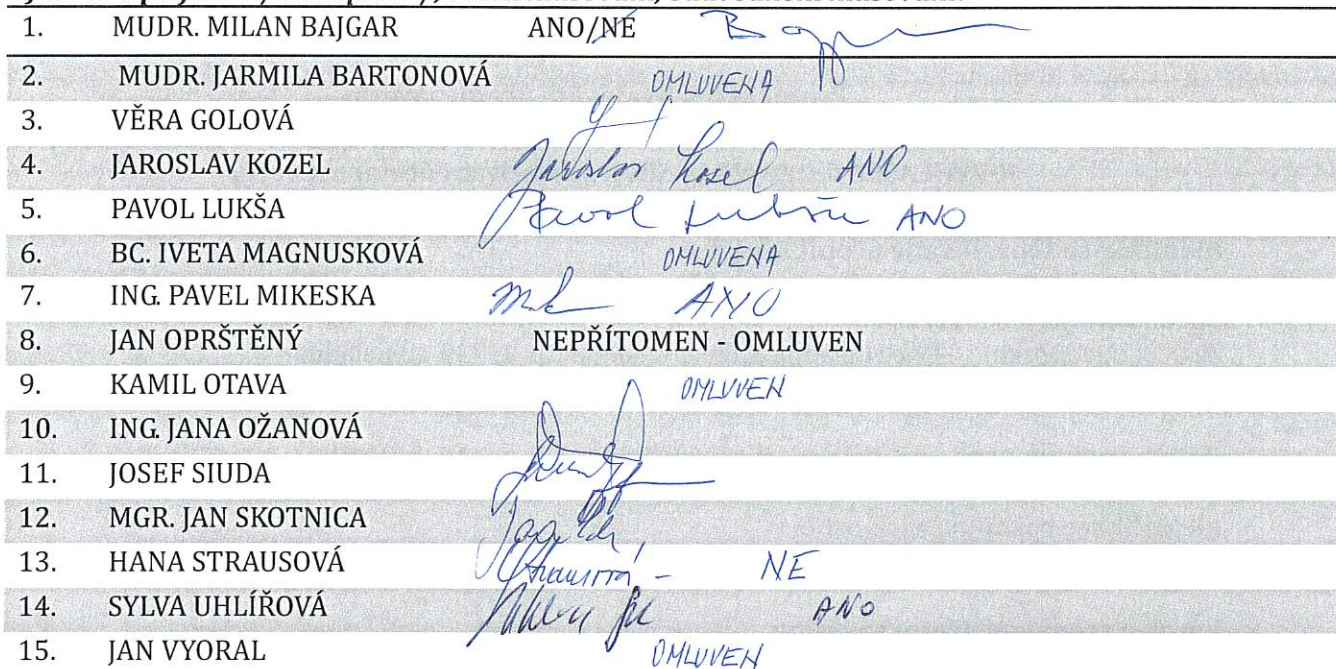 1. MUDR. MILAN BAJGAR ANO/NE
2. MUDR. JARMILA BARTONOVÁ OMLUVENA
3. VĚRA GOLOVÁ
4. JAROSLAV KOZEL Jaroslav Kozel ANO
5. PAVOL LUKŠA Pavol Lukša ANO
6. BC. IVETA MAGNUSKOVÁ OMLUVENA
7. ING. PAVEL MIKESKA ANO
8. JAN OPRŠTĚNÝ NEPŘÍTOMEN - OMLUVEN
9. KAMIL OTAVA OMLUVEN
10. ING. JANA OŽANOVÁ
11. JOSEF SIUDA
12. MGR. JAN SKOTNICA
13. HANA STRAUSOVÁ - NE
14. SYLVA UHLÍŘOVÁ ANO
15. JAN VYORAL OMLUVEN